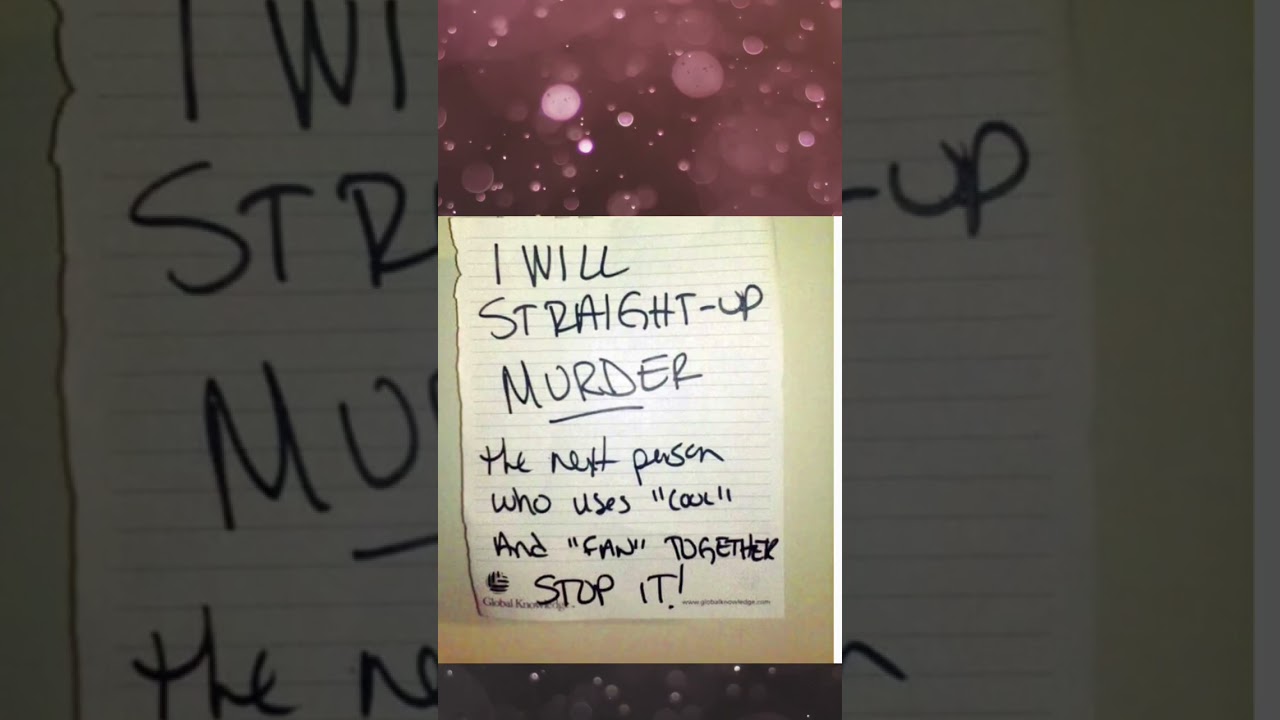 I WILL
STRAIGHT-UP
MURDER
the next person
who uses "Cool"
And "FAN" TOGETHER
STOP IT!
Global Knowledge
www.globalknowledge.com